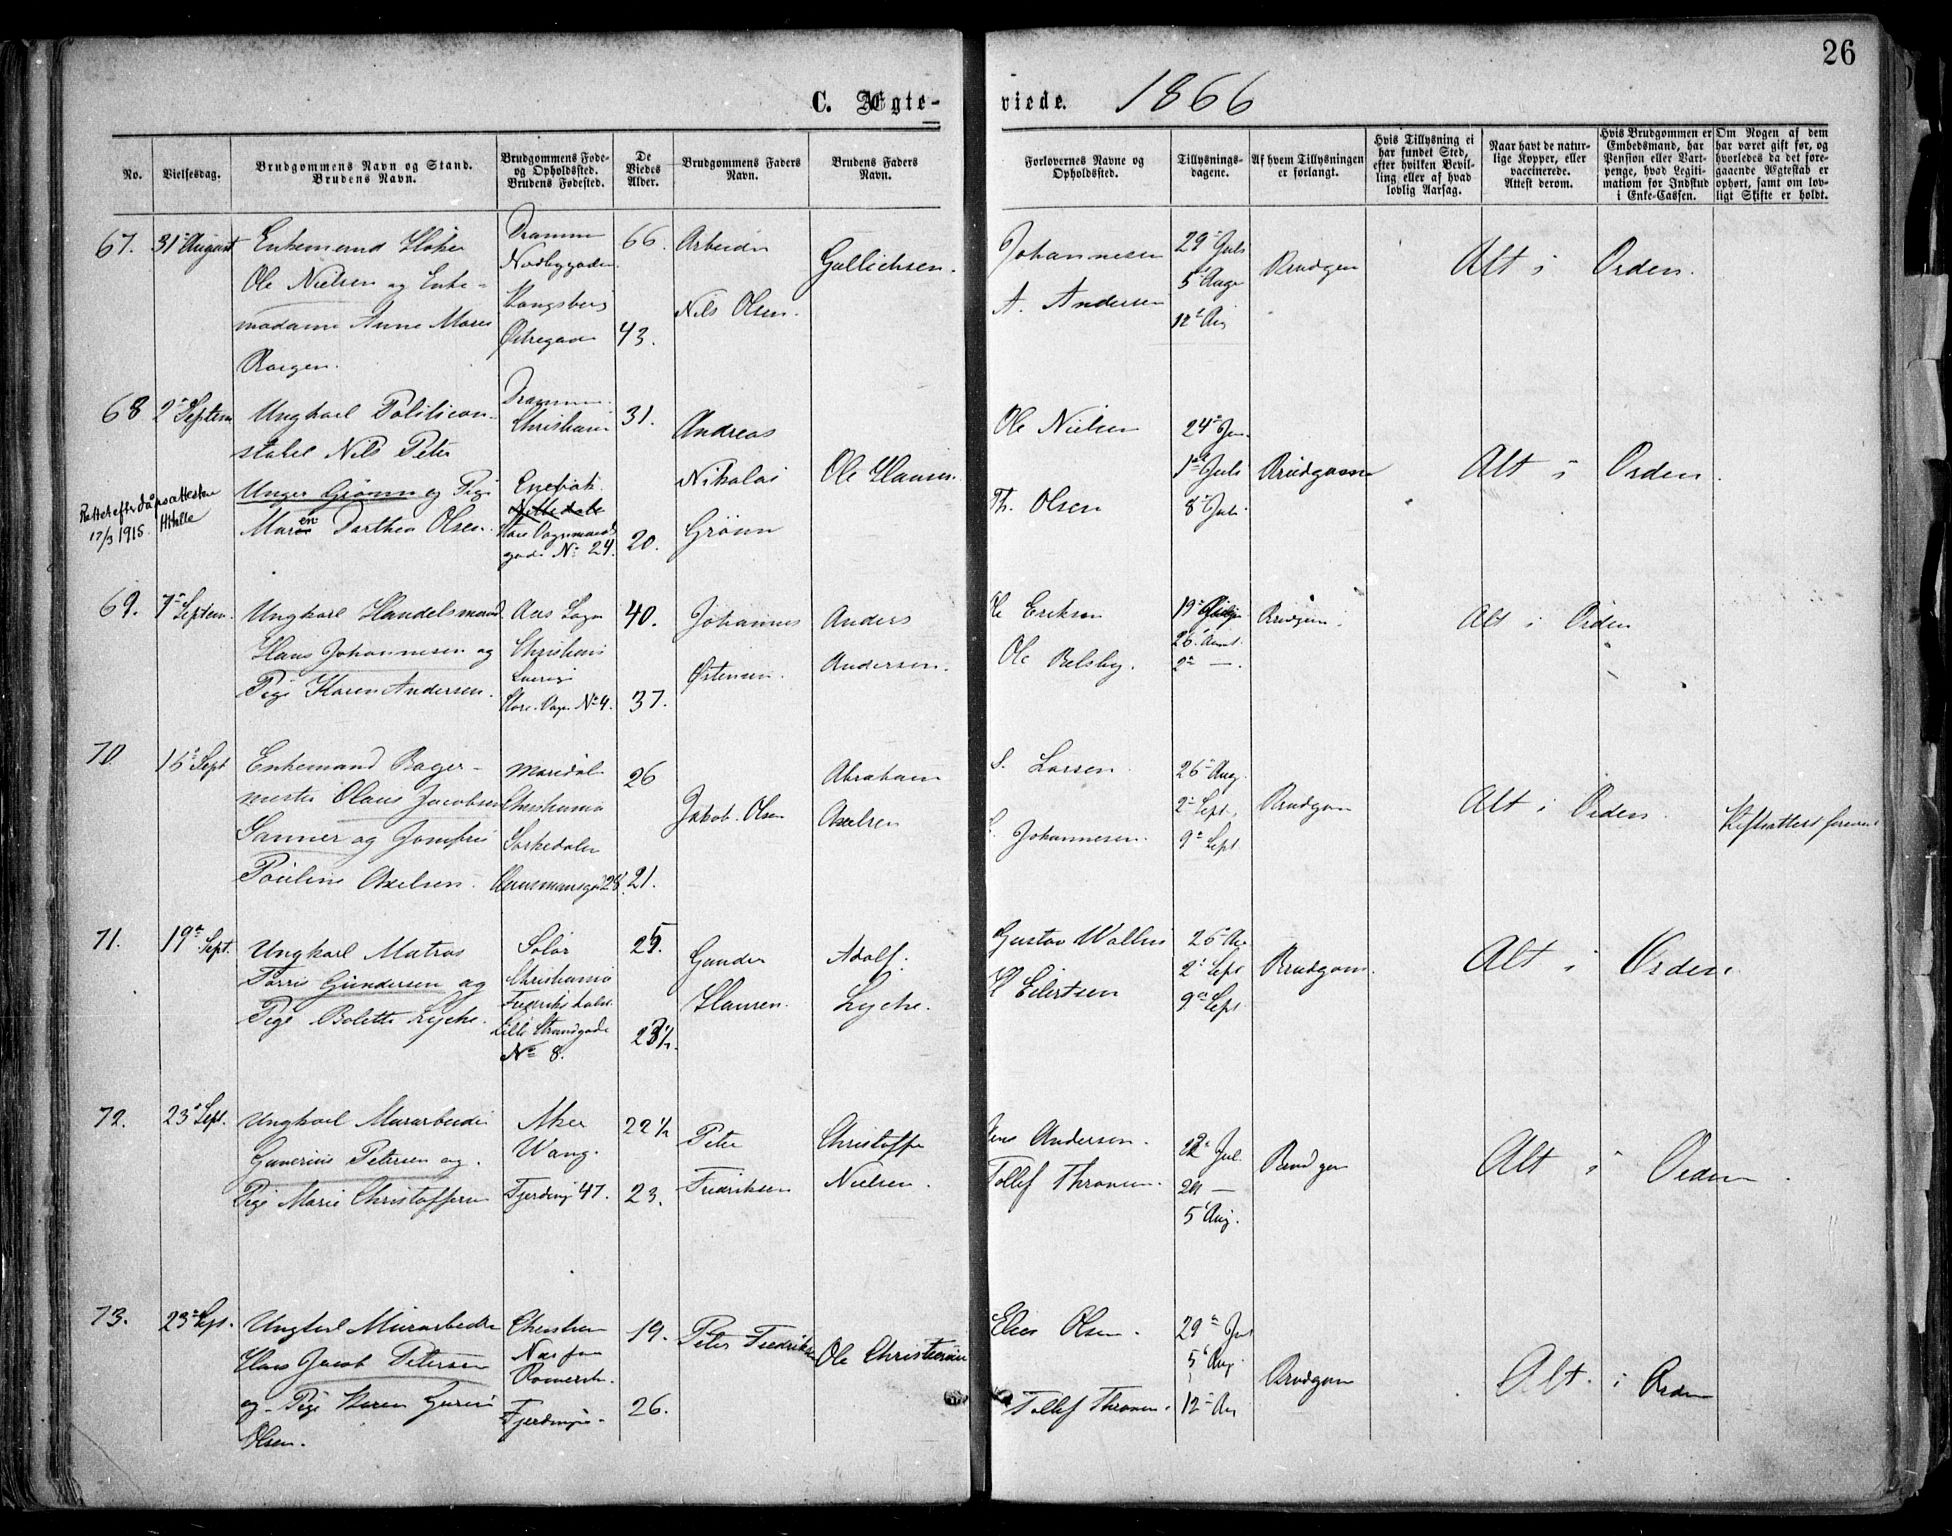 26
C. Ægte-
viede. 1866
No.
Vielsesdag.
Brudgommens Navn og Stand.
Brudens Navn.
Brudgommens Føde-
og Opholdssted.
Brudens Fødested.
De
Viedes
Alder.
Brudgommens Faders
Navn.
Brudens Faders
Navn.
Forlovernes Navne og
Opholdssted.
Tillysnings-
dagene.
Af hvem Tillysningen
er forlangt.
Hvis Tillysning ei
har fundet Sted,
efter hvilken Bevil-
ling eller af hvad
lovlig Aarsag.
Naar havt de natur-
lige Kopper, eller
vaccinerede.
Attest derom.
Hvis Brudgommen er
Embedsmand, har
Pension eller Vart-
penge, hvad Legiti-
mation for Indskud
i Enke-Cassen.
Om Nogen af dem
har været gift før, og
hvorledes da det fore-
gaaende Ægteskab er
ophørt, samt om lov-
ligt Skifte er holdt.
67.
31 August
Enkemand
Ole Nielsen og Enke-
madame Anne Marie
Dramme
Kongsberg
Østregade
66.
43.
Arbeider
Nils Olsen.
Gullichsen.
Johannesen
A. Andersen
29 Juli
5 Aug
12 Aug
Brudgom
Alt i Orden.
68
2 Septem
Ungkarl Politicon-
stabel Nils Peter
Unger Grønn og Pige
Maren Dorthea Olsen.
Rettet efter dåpsattester
17/3 1915.
Drammen
Christiania
No 24.
31.
20.
Andreas
Nikolai
Grønn
Ole Hansen.
Ole Nielsen
Th. Olsen
24 Jun
1 Juli
8 Juli
Brudgommen
Alt i Orden
69.
7 Septem.
Ungkarl Handelsmand
Hans Johannesen og
Pige Karen Andersen.
Aas Sogn
Christiania
Sverige
Store Vogn. No 9.
40.
37.
Johannes
Østensen
Anders
Andersen.
Ole Eriksen
Ole Belsby.
19
26
2 —.
Brudgom.
Alt i Orden
70
16 Sept
Enkemand Bager-
mester Olaus Jacobsen
Sanner og Jomfru
Pauline Axelsen.
Maridalen
Christiania
Sørkedalen
Hausmansgd 28.
26
21.
Jakob Olsen
Abraham
Axelsen
S. Larsen.
Johannesen.
26 Aug.
2 Sept.
9 Sept
Brudgom
Alt i Orden.
Skifteattest foreviist
71.
19 Sept.
Ungkarl Matros
Torris Gundersen og
Pige Bolette Lyche.
Solør
Christiania
Fredrikshald
Lille Strandgade
No 8.
25.
23 1/2.
Gunder
Hansen.
Adolf.
Lyche.
Gustav Wallin
H Eilertsen
26 Au
2 Sept
9 Sept
Brudgom.
Alt i Orden
72.
23 Sept.
Ungkarl Murarbeider
Gunerius Petersen og
Pige Marie Christoffersen
Aker
Wang.
Fjerding 47.
22 1/2
23.
Peter
Fredriksen
Christoffer
Nielsen.
Jens Andersen.
Tollef Thronsen.
22 Jul.
29 —
5 Aug.
Brudgom
Alt i Orden.
73.
23 Sep.
Ungkarl Murarbeider
Hans Jacob Petersen
og Pige Karen Gurine
Olsen.
Christian
Næs paa
Romerike.
Fjerdingen
19.
26.
Peter Fredriksen
Ole Christiansen
Elias Olsen.
Tollef Thronsen.
29 Jul
5 Aug.
12 Aug
Brudgom
Alt i Orden